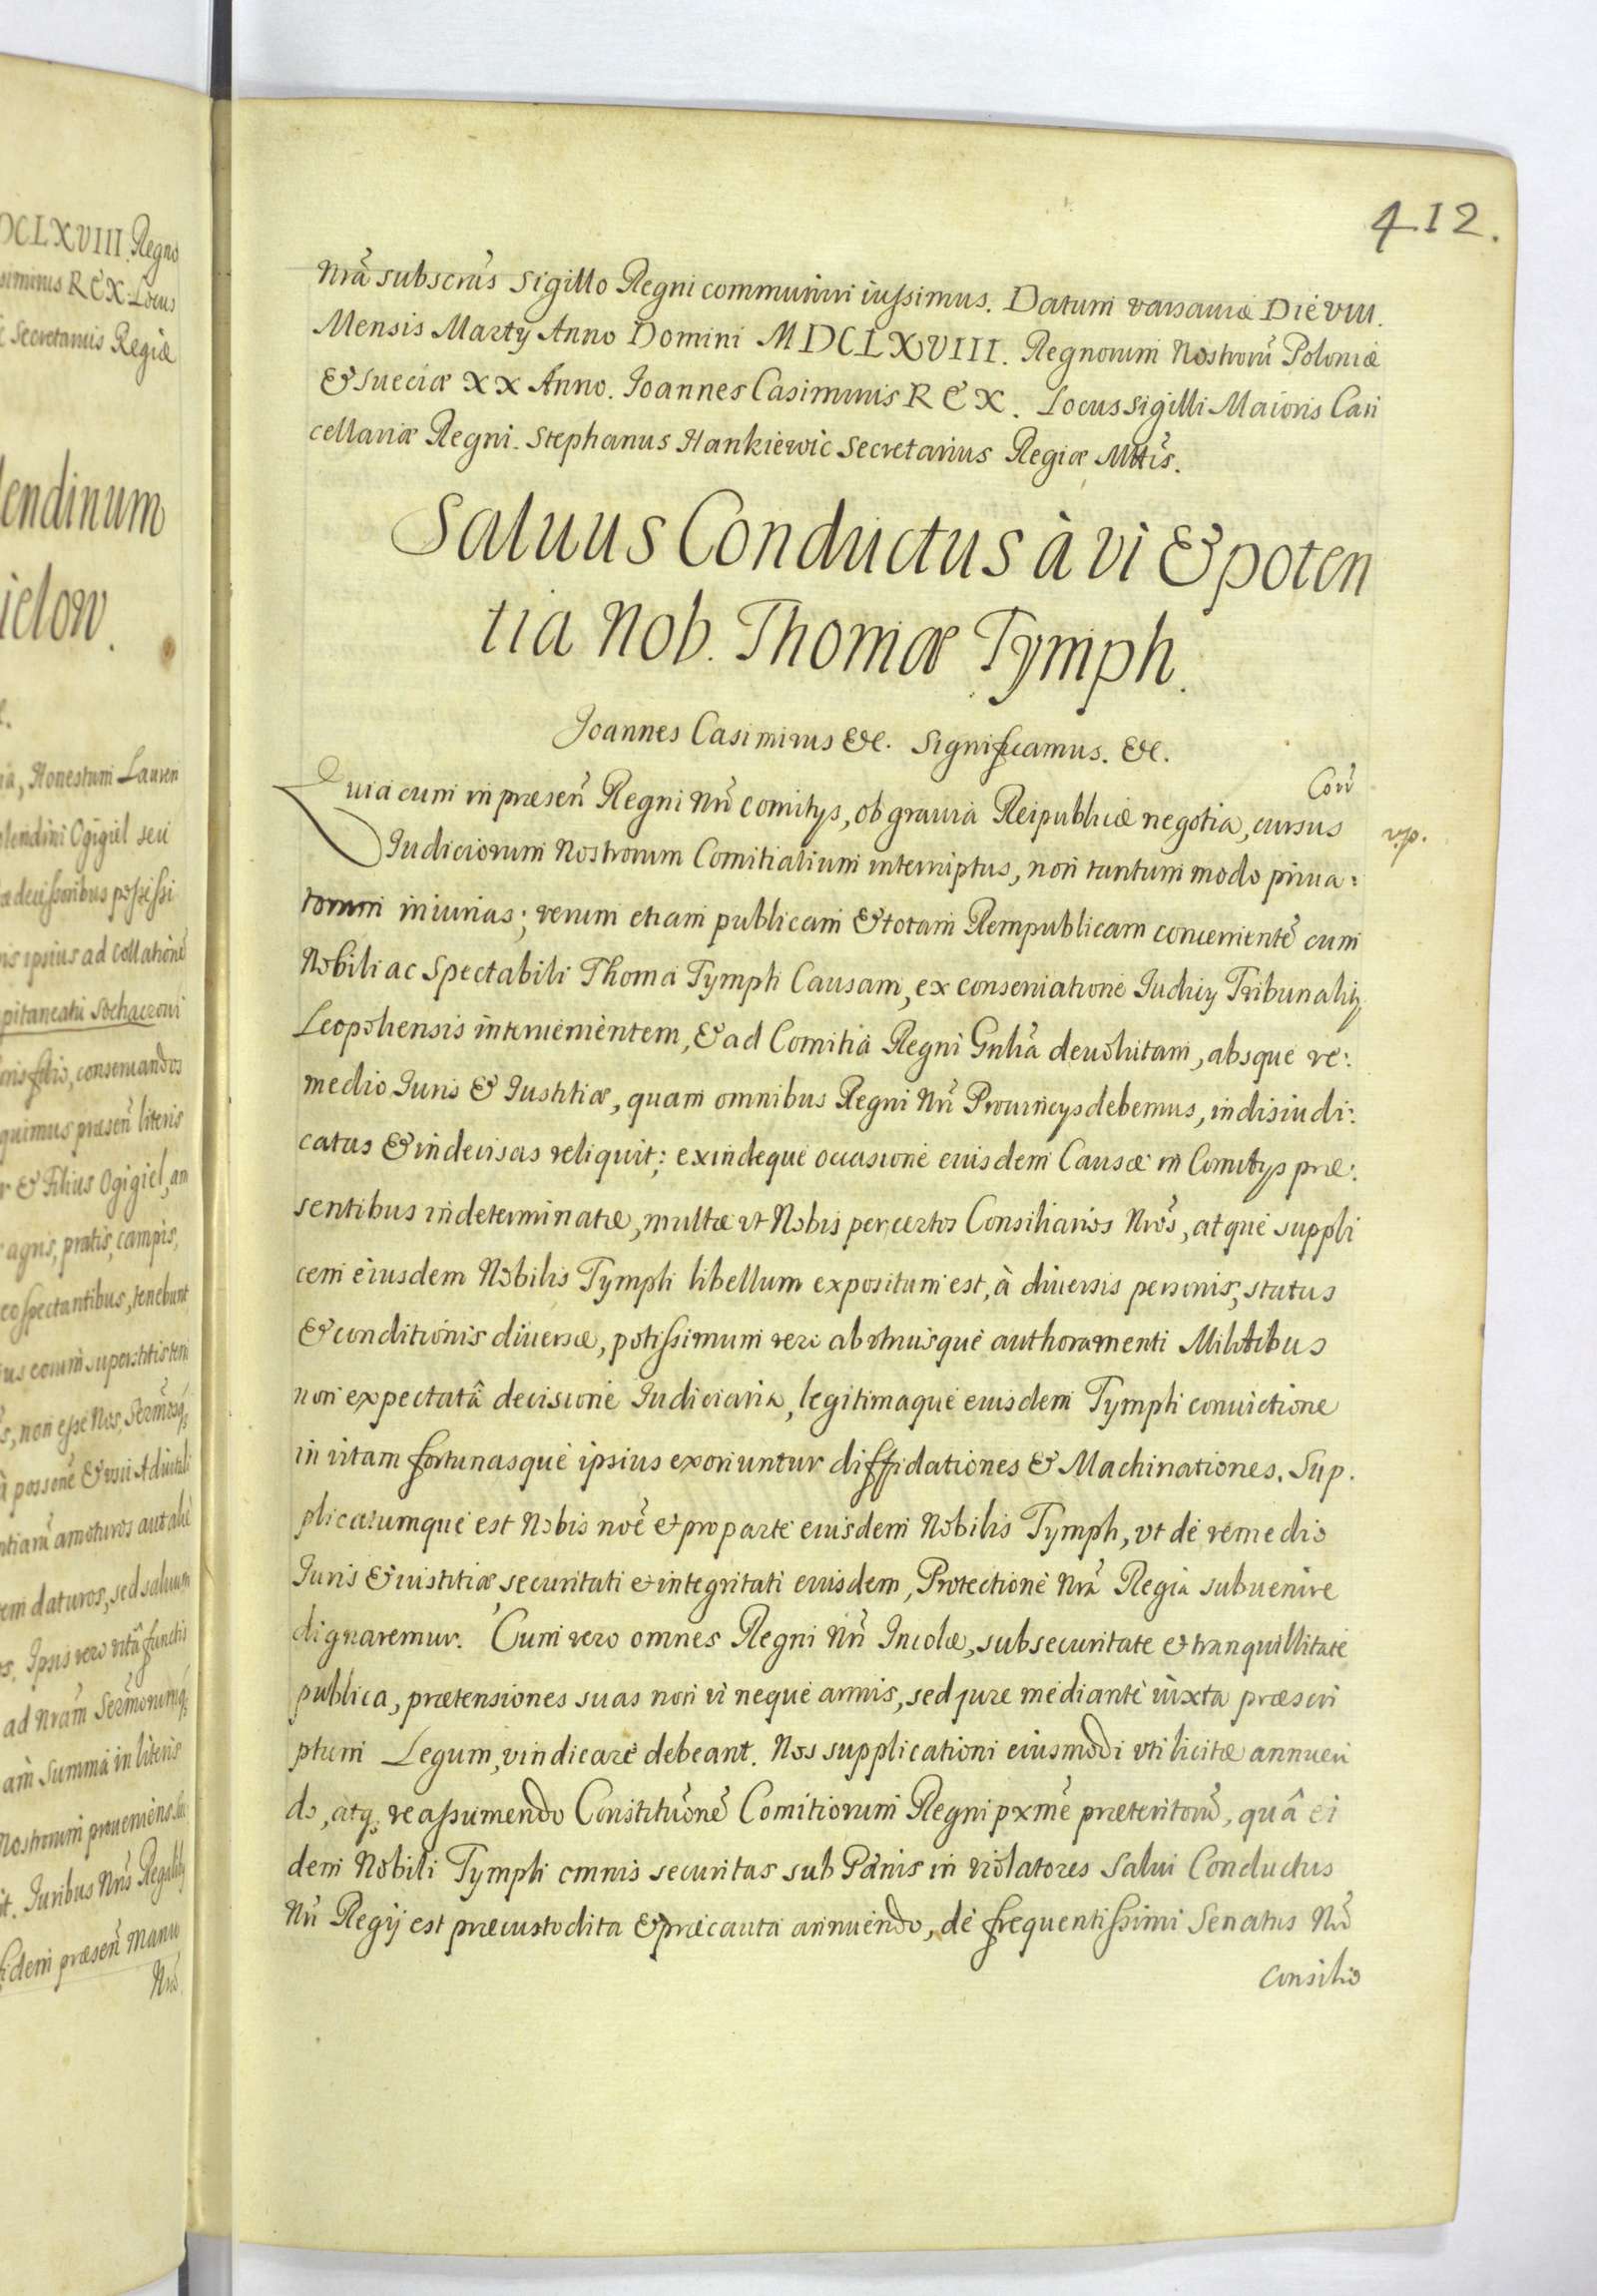 DCLXVIII. Regno
simirus REX. Locus
Secretarius Regiæ
lendinum
ielow.
ia, Honestum Lauren
lendini Ogigiel seu
a decessoribus possessi
is ipsius ad collationē
pitaneatu Sochaczoui
oris filio, conseruandos
quimus præsen̄ literis
r & Filius Ogigiel, an
agris, pratis, campis,
eo spectantibus, tenebunt
ius comm̄ superstitis tem
s, non esse Nos, Serm̄osq;
à possone & usu Aduitali
ntiam̄ amoturos aut alié
em daturos, sed saluum
os. Ipsis vero vitâ functis
ad Nram̄ Serm̄orumq;
am summa in literis
Nostrorum proueniens
it. Iuribus Nrīs Regalib;
fidem præsen̄ manu
Nrā
412.
Nrā subscrīs sigillo Regni communiri iussimus. Datum varsauiæ Die VIII.
Mensis Martÿ Anno Domini MDCLXVIII. Regnorum Nostrorū Poloniæ
& Sueciæ XX Anno. Joannes Casimirus REX. Locus sigilli Maioris Can
cellariæ Regni. Stephanus Hankiewic Secretarius Regiæ Mttis.
Saluus Conductus à vi & poten
tia Nob. Thomæ Tymph.
Joannes Casimirus &c. Significamus. &c.
Con̄
Quia cum in præsen̄ Regni Nrī comitÿs, ob grauia Reipublicæ negotia, cursus
vp.
Iudiciorum Nostrorum Comitialium interruptus, non tantum modo priua:
torum iniurias; verum etiam publicam & totam Rempublicam concernentē cum
Nobili ac Spectabili Thoma Tymph Causam, ex conseruatione Iudicÿ Tribunalis
Leopoliensis interuenientem, & ad Comitia Regni Gnlia deuolutam, absque re:
medio Iuris & Iustitiæ, quam omnibus Regni Nrī Prouincÿs debemus, indisiudi:
catas & indecisas reliquit; exindeque occasione eiusdem Causæ in Comitÿs præ:
sentibus indeterminatæ, multæ vt Nobis per certos Consiliarios Nrōs, atque suppli
cem eiusdem Nobilis Tymph libellum expositum est, à diuersis personis, status
& conditionis diuersæ, potissimum vero ab vtriusque authoramenti Militibus
non expectatâ decisione Iudiciaria, legitimaque eiusdem Tymph conuictione
in vitam fortunasque ipsius exoriuntur diffidationes & Machinationes. Sup.
plicatumque est Nobis noē et pro parte eiusdem Nobilis Tymph, vt de remedio
Iuris & iustitiæ securitati et integritati eiusdem, Protectione Nrā Regia subuenire
dignaremur. Cum vero omnes Regni Nrī Incolæ, sub securitate et tranquillitate
publica, prætensiones suas non vi neque armis, sed jure mediante iuxta præscri
ptum Legum, vindicare debeant. Nos supplicationi eiusmodi vti licitæ annuen
do, atq; reassumendo Constitutīonē Comitiorum Regni pxmē præteritorū, quâ ei
dem Nobili Tymph omnis securitas sub Pœnis in violatores Salui Conductus
Nrī Regij est præcustodita & præcauta annuendo, de frequentissimi Senatus Nrī
Consilio